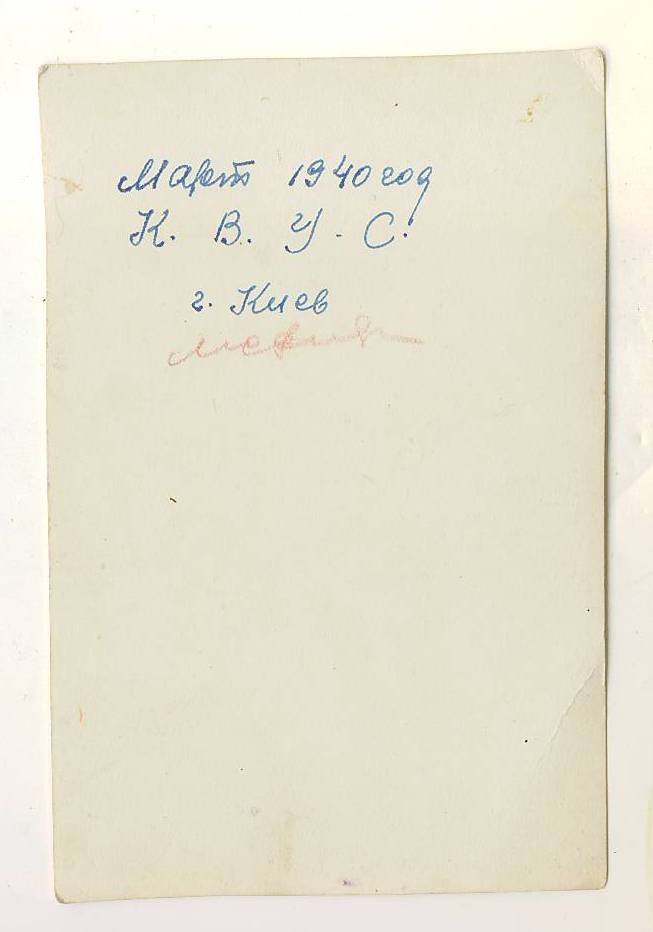 Март 1940 год
К. В. У. С.
г. Киев